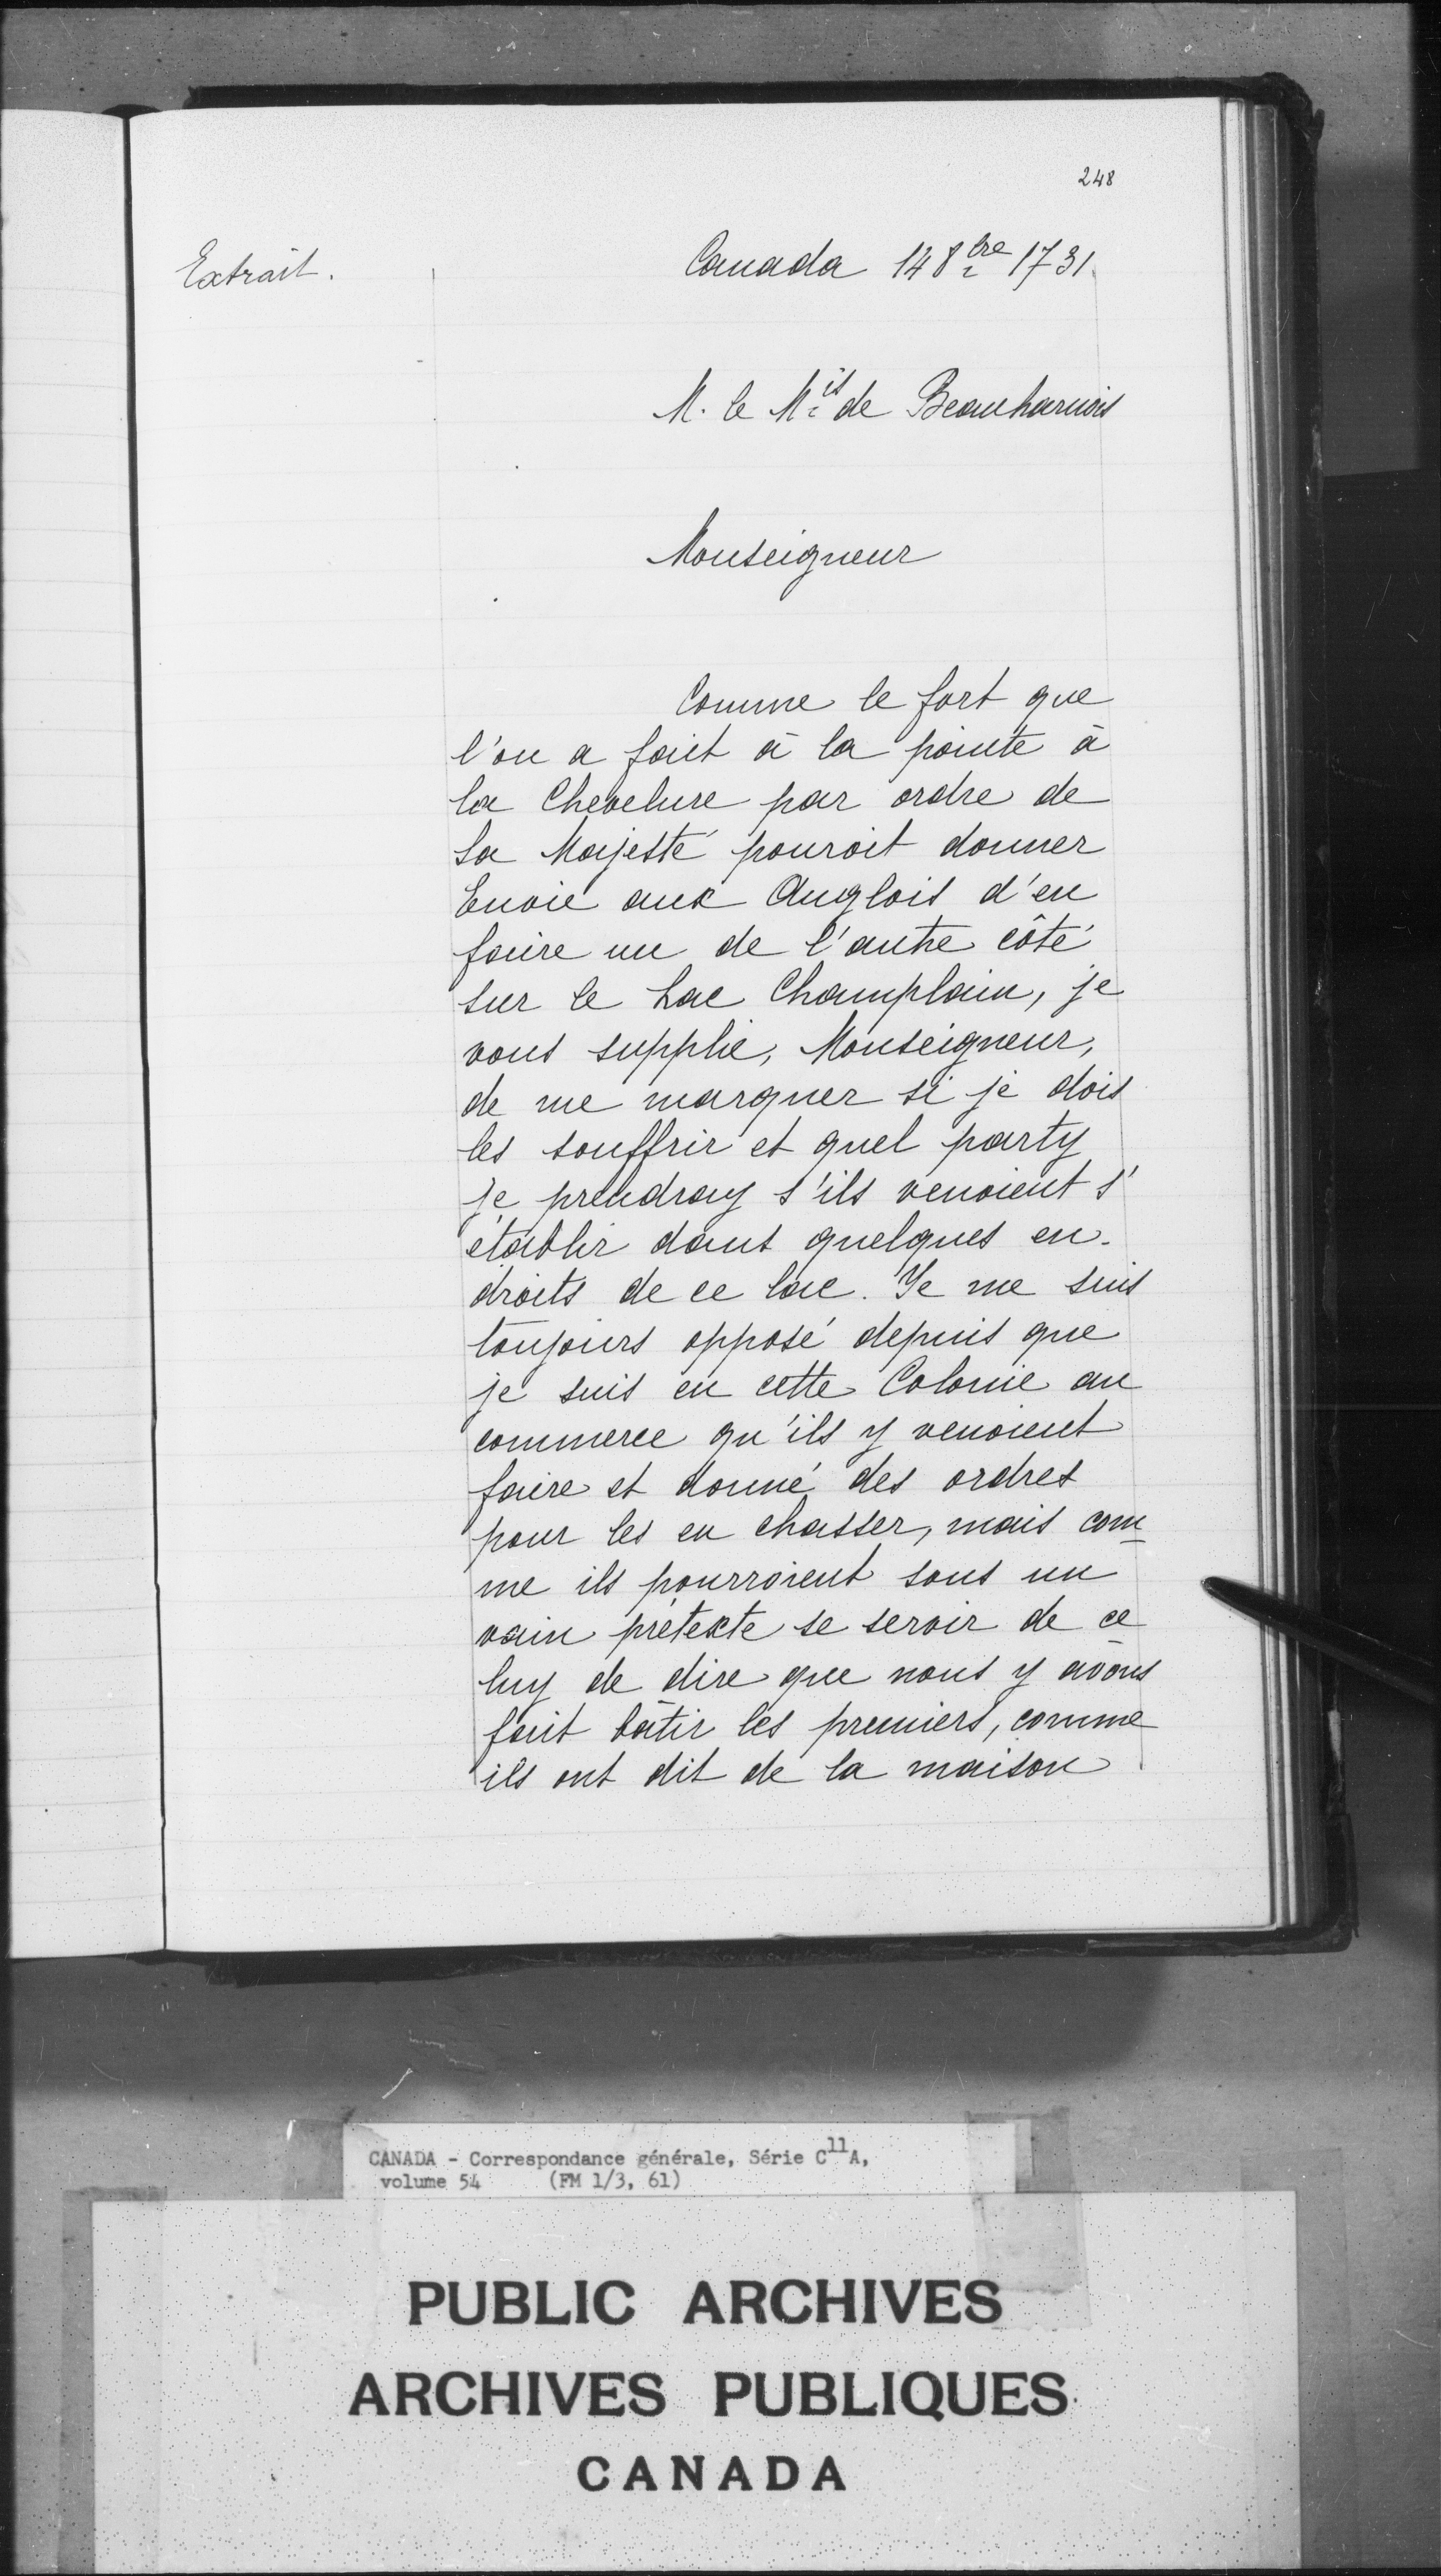 248
Extrait.
Canada 14 8bre 1731.
M. le Mis de Beauharnois
Monseigneur
Comme le fort que
l'on a fait à la pointe à
la Chevelure par ordre de
Sa Majesté pouroit donner
Envie aux Anglois d'en
faire un de l'autre côté
sur le Lac Champlain, je
vous supplie, Monseigneur,
de me marquer si je dois
les souffrir et quel party
je prendray s'ils venoient s'
établir dans quelques en-
droits de ce lac. Je me suis
toujours opposé depuis que
je suis en cette Colonie au
commerce qu'ils y venoient
faire et donné des ordres
pour les en chasser, mais com
me ils pourroient sous un
vain prétexte se servir de ce
luy de dire que nous y avons
fait bâtir les premiers, comme
ils ont dit de la maison
CANADA - Correspondance générale, Série C11A,
volume 54 (FM 1/3, 61)
PUBLIC ARCHIVES
ARCHIVES PUBLIQUES
CANADA